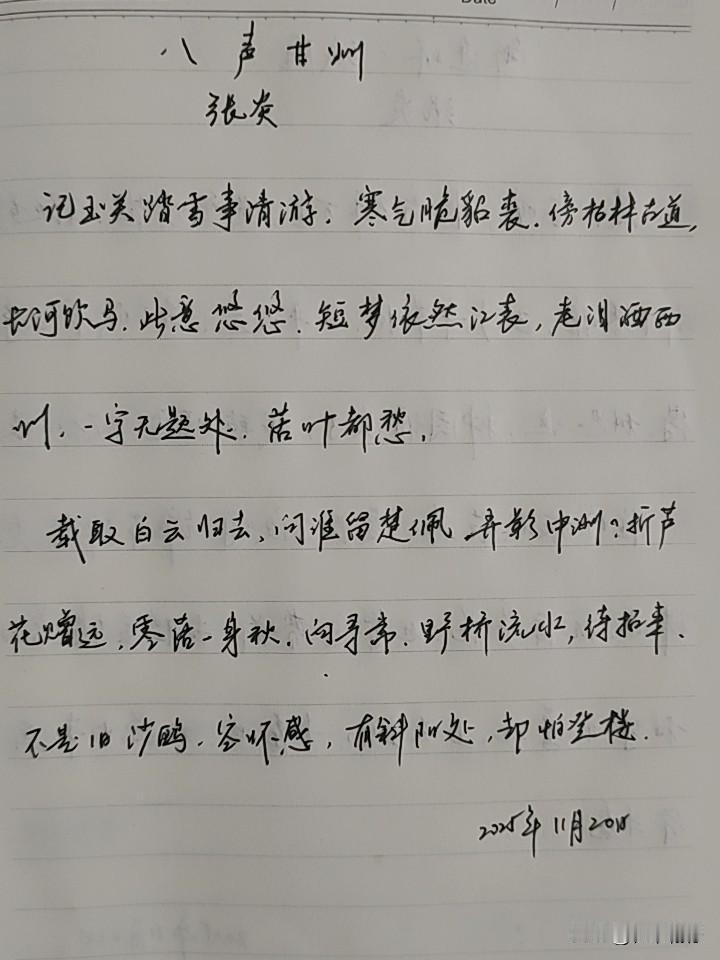 Date / /
八声甘州
张炎
记玉关踏雪事清游，寒气脆貂裘，傍枯林古道，
长河饮马，此意悠悠，短梦依然江表，老泪洒西
州，一字无题处，落叶都愁，
载取白云归去，问谁留楚佩 弄影中洲？折芦
花赠远，零落一身秋，向寻常，野桥流水，待招来，
不是旧沙鸥，空怀感，有斜阳处，却怕登楼．
2025年11月20日